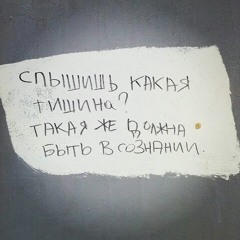 СЛЫШИШЬ КАКАЯ
ТИШИНА?
ТАКАЯ ЖЕ ДОЛЖНА
БЫТЬ В СОЗНАНИИ.